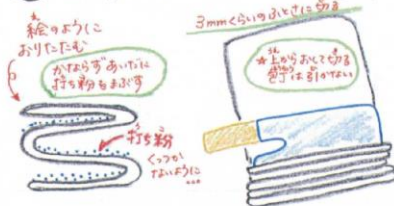 絵のように
おりたたむ
かならずあいだに
打ち粉もまぶす
打ち粉
くっつか
ないように
…
3mmくらいのふとさに切る
★上からおして切る
包丁は引かない